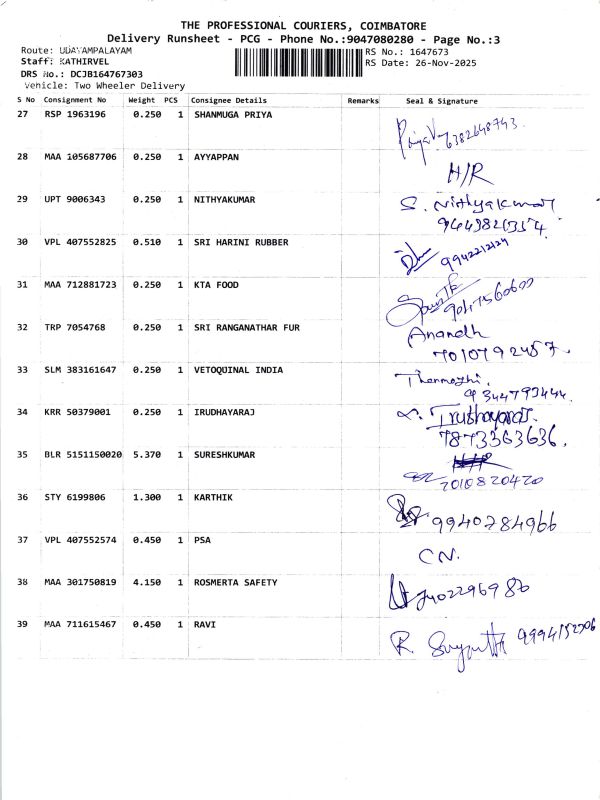 THE PROFESSIONAL COURIERS, COIMBATORE
Delivery Runsheet - PCG - Phone No.:9047080280 - Page No.:3
Route: UDAYAMPALAYAM
RS No.: 1647673
Staff: KATHIRVEL
RS Date: 26-Nov-2025
DRS No.: DCJB164767303
Vehicle: Two Wheeler Delivery
S No Consignment No Weight PCS Consignee Details Remarks Seal & Signature
27 RSP 1963196 0.250 1 SHANMUGA PRIYA
6382648743
28 MAA 105687706 0.250 1 AYYAPPAN
H/R
29 UPT 9006343 0.250 1 NITHYAKUMAR S. Nithyakumar
30 VPL 407552825 0.510 1 SRI HARINI RUBBER
9942212124
31 MAA 712881723 0.250 1 KTA FOOD
9047560600
32 TRP 7054768 0.250 1 SRI RANGANATHAR FUR Anandh
7010792457.
33 SLM 383161647 0.250 1 VETOQUINAL INDIA Thenmozhi.
9344793444.
34 KRR 50379001 0.250 1 IRUDHAYARAJ
7873363636.
35 BLR 5151150020 5.370 1 SURESHKUMAR
7010820420
36 STY 6199806 1.300 1 KARTHIK
9940784966
37 VPL 407552574 0.450 1 PSA
CN.
38 MAA 301750819 4.150 1 ROSMERTA SAFETY
7402296986
39 MAA 711615467 0.450 1 RAVI
R 9994152706